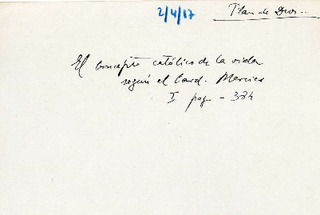 2/4/17
Plan de Dios..
El concepto católico de la vida
según el Card. Mercier
I pag - 334